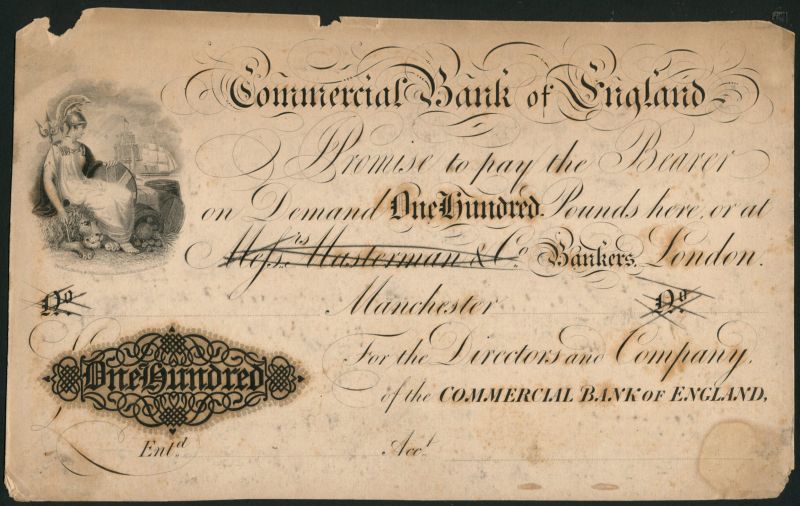 Commercial Bank of England
I Promise to pay the Bearer
on Demand One Hundred Pounds here, or at
Messrs. Masterman & Co. Bankers, London.
No Manchester No
For the Directors and Company,
One Hundred
of the COMMERCIAL BANK OF ENGLAND,
£
Entd Acct.